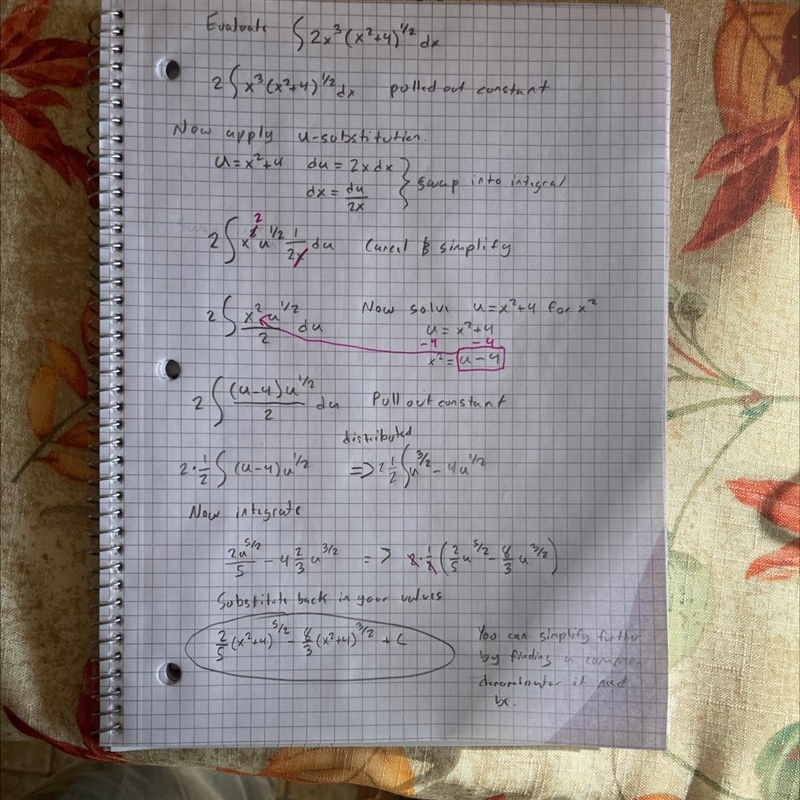 Evaluate ∫ 2x³ (x²+4)^1/2 dx
2 ∫ x³ (x²+4)^1/2 dx pulled out constant
Now apply u-substitution.
u = x²+4 du = 2x dx
dx = du/2x } swap into integral
2 ∫ x^3 2 u^1/2 1/2x du Cancel & simplify
2 ∫ x² u^1/2 / 2 du Now solve u = x²+4 for x²
u = x²+4
-4 -4
x² = u-4
2 ∫ (u-4)u^1/2 / 2 du Pull out constant
distributed
2·1/2 ∫ (u-4)u^1/2 => 2 1/2 ∫ u^3/2 - 4u^1/2
Now integrate
2u^5/2 / 5 - 4 2/3 u^3/2 => 2·1/2 (2/5 u^5/2 - 8/3 u^3/2)
Substitute back in your values
2/5 (x²+4)^5/2 - 8/3 (x²+4)^3/2 + C
You can simplify further
by finding a common
denominator if need
be.